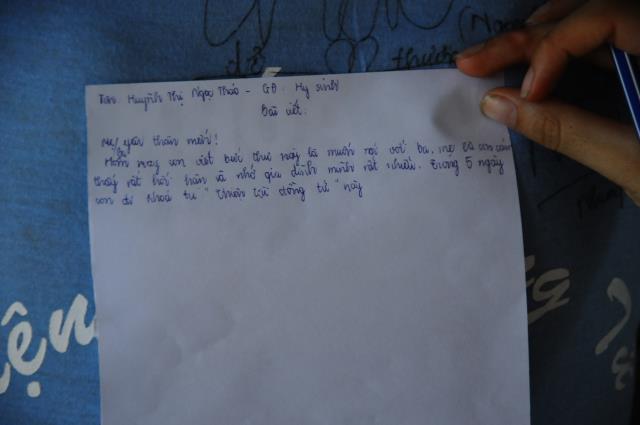 (Ngọc
dở
thương
Tên: Huỳnh Thị Ngọc Thảo - GĐ: Hy sinh
Bài viết.
Mẹ yêu thân mến!
Ba
Hôm nay con viết bức thư này là muốn nói với ba, mẹ là con cảm
thấy rất hối hận và nhớ gia đình mình rất nhiều. Trong 5 ngày
con đi khoá tu "Thiện tài đồng tử" này
ện